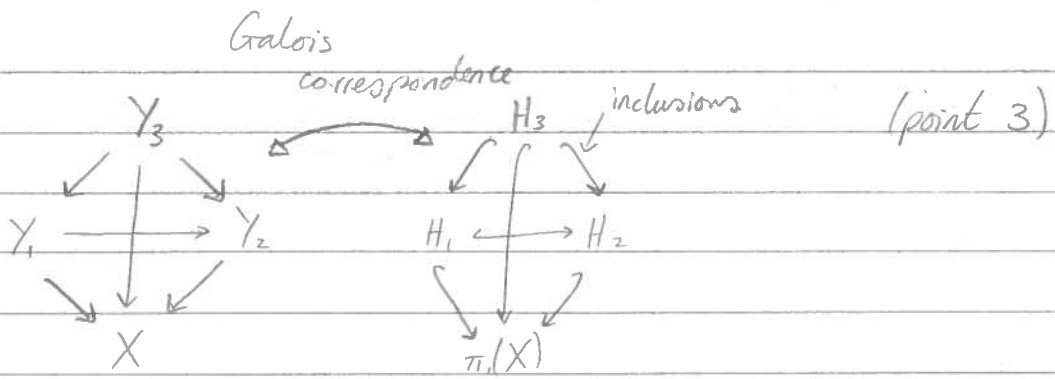 Galois
correspondence
Y₃ H₃ inclusions (point 3)
Y₁ Y₂ H₁ H₂
X π₁(X)